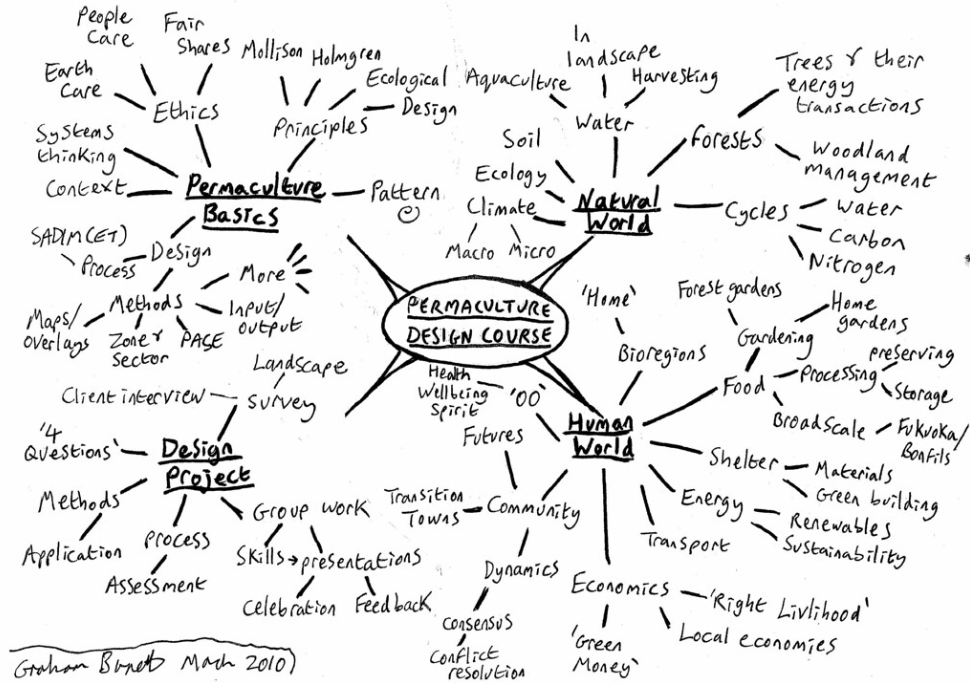 PERMACULTURE
DESIGN COURSE
Permaculture
Basics
Ethics
People
Care
Fair
Shares
Earth
Care
Principles
Mollison
Holmgren
Ecological
Design
Systems
thinking
Context
Pattern
Design
Process
SADIM(CET)
Methods
Maps/
overlays
Zone &
Sector
PASE
Input/
output
More
Natural
World
Water
Aquaculture
In
landscape
Harvesting
Soil
Ecology
Climate
Macro
Micro
Forests
Trees & their
energy
transactions
Woodland
management
Cycles
Water
Carbon
Nitrogen
Human
World
Bioregions
'Home'
Food
Gardening
Forest gardens
Home
gardens
Processing
preserving
Storage
Broadscale
Fukuoka/
Bonfils
Shelter
Materials
Green building
Energy
Renewables
Sustainability
Transport
Economics
'Right Livlihood'
Local economies
'Green
Money'
Community
Futures
Transition
Towns
Dynamics
consensus
Conflict
resolution
'OO'
Health
Wellbeing
Spirit
Design
Project
Survey
Landscape
Client interview
'4
Questions'
Methods
Application
Process
Assessment
Group work
Skills → presentations
Celebration
Feedback
Graham 2010